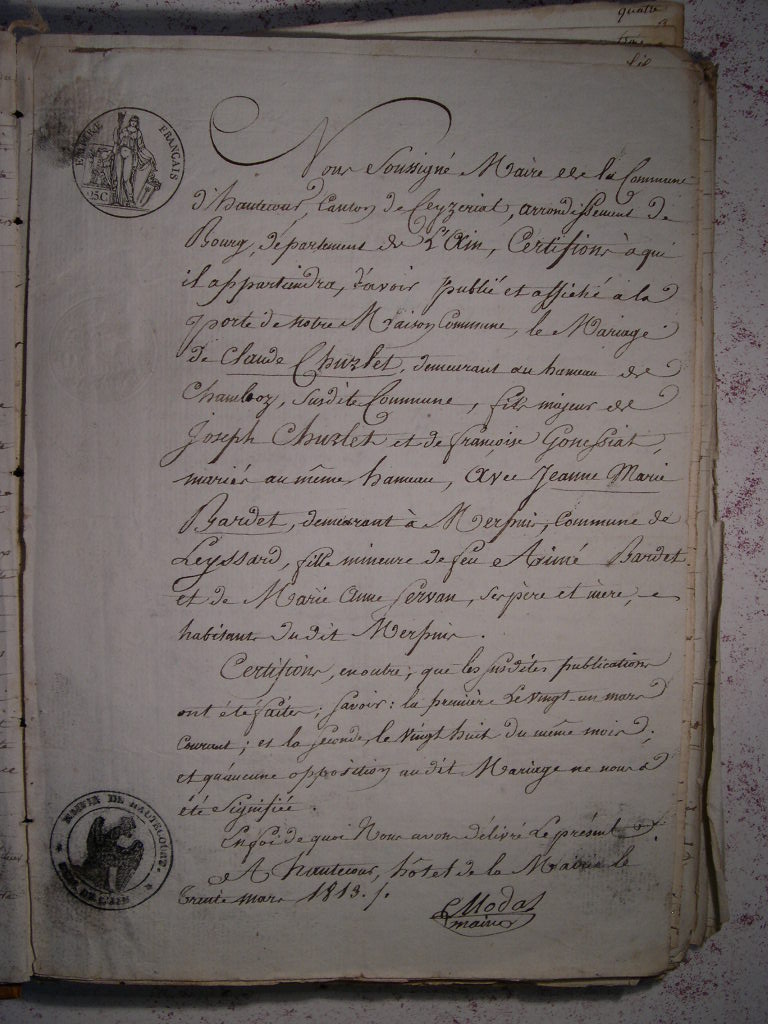 quatre
EMPIRE FRANÇAIS
25C
Nous Soussigné Maire de la Commune
d'hautecour, Canton de Ceyzeriat, arrondissement de
Bourg, département de L'Ain, Certifions à qui
il appartiendra, d'avoir publié et affiché a la
porte de notre Maison Commune, le Mariage
de Claude Churlet, demeurant au hameau de
Chamboz, Susdite Commune, fils majeur de
Joseph Churlet et de françoise Gonessiat,
mariés au même hameau, avec Jeanne Marie
Bardet, demeurant à Merpuis, Commune de
Leyssard, fille mineure de feu Aimé Bardet
et de Marie Anne Servan, ses père et mère,
habitants dudit Merpuis.
Certifions, en outre, que les susdites publications
ont été faites; Savoir: la première Le vingt-un mars
Courant; et la seconde, le vingt huit du même mois;
et qu'aucune opposition audit Mariage ne nous a
été Signifiée.
En foi de quoi Nous avons délivré Le présent
A hautecour, hôtel de la Mairie le
trente mars 1813./.
Modas
maire
MAIRIE DE HAUTECOUR
DEP. DE L'AIN